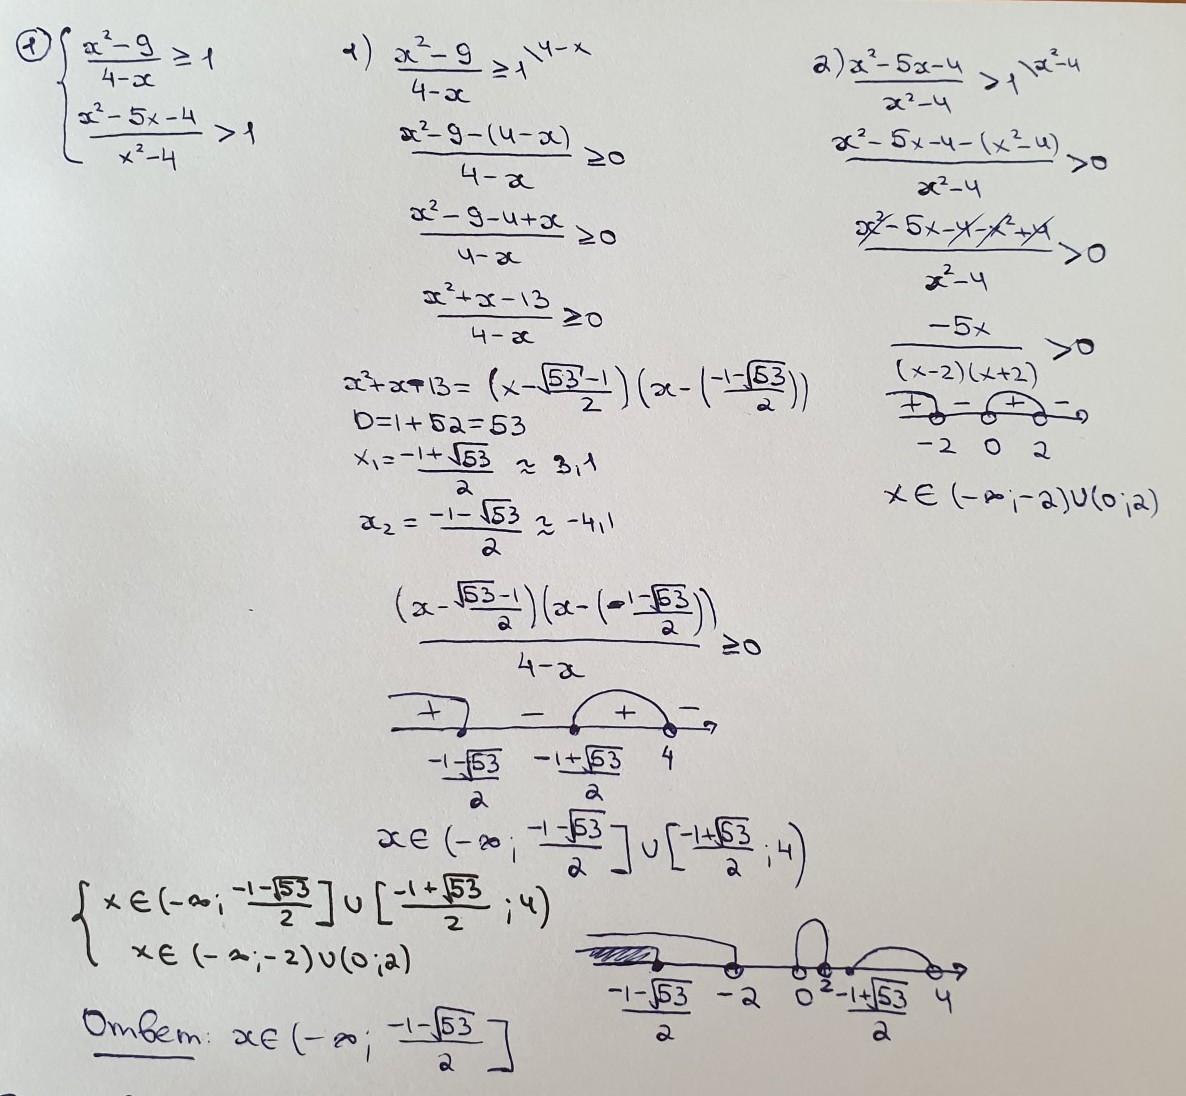 ① { (x² - 9)/(4 - x) ≥ 1
(x² - 5x - 4)/(x² - 4) > 1
1) (x² - 9)/(4 - x) ≥ 1 \4-x
(x² - 9 - (4 - x))/(4 - x) ≥ 0
(x² - 9 - 4 + x)/(4 - x) ≥ 0
(x² + x - 13)/(4 - x) ≥ 0
x² + x - 13 = (x - (√53 - 1)/2)(x - ((-1 - √53)/2))
D = 1 + 52 = 53
x₁ = (-1 + √53)/2 ≈ 3,1
x₂ = (-1 - √53)/2 ≈ -4,1
((x - (√53 - 1)/2)(x - ((-1 - √53)/2)))/(4 - x) ≥ 0
+ - + -
(-1 - √53)/2 (-1 + √53)/2 4
x ∈ (-∞; (-1 - √53)/2] ∪ [(-1 + √53)/2; 4)
2) (x² - 5x - 4)/(x² - 4) > 1 \x²-4
(x² - 5x - 4 - (x² - 4))/(x² - 4) > 0
(x² - 5x - 4 - x² + 4)/(x² - 4) > 0
(-5x)/((x - 2)(x + 2)) > 0
+ - + -
-2 0 2
x ∈ (-∞; -2) ∪ (0; 2)
{ x ∈ (-∞; (-1 - √53)/2] ∪ [(-1 + √53)/2; 4)
x ∈ (-∞; -2) ∪ (0; 2)
(-1 - √53)/2 -2 0 2 (-1 + √53)/2 4
Ответ: x ∈ (-∞; (-1 - √53)/2]